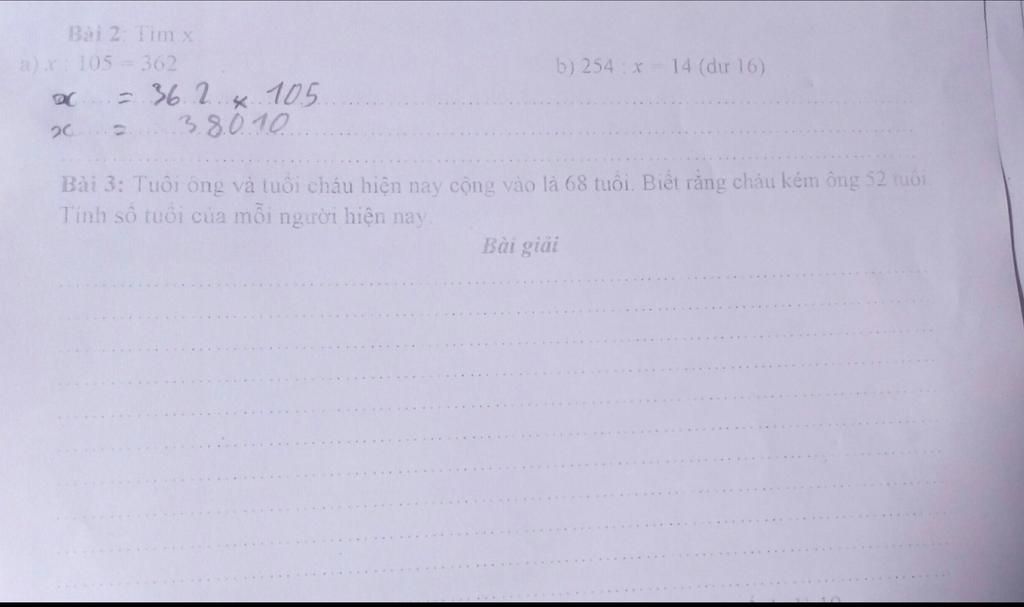 Bài 2: Tìm x
a) x : 105 = 362
b) 254 : x = 14 (dư 16)
x = 362 x 105
x = 38010
Bài 3: Tuổi ông và tuổi cháu hiện nay cộng vào là 68 tuổi. Biết rằng cháu kém ông 52 tuổi.
Tính số tuổi của mỗi người hiện nay.
Bài giải